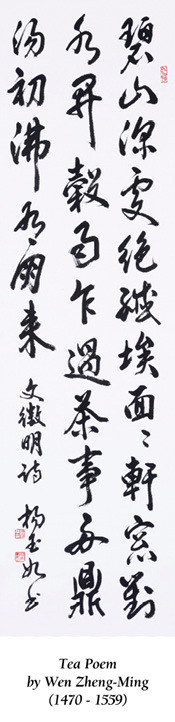 碧山深處絕纖埃面々軒窗對
水開穀雨乍過茶事好鼎
湯初沸有朋來 文徵明詩 楊 書
Tea Poem
by Wen Zheng-Ming
(1470 - 1559)